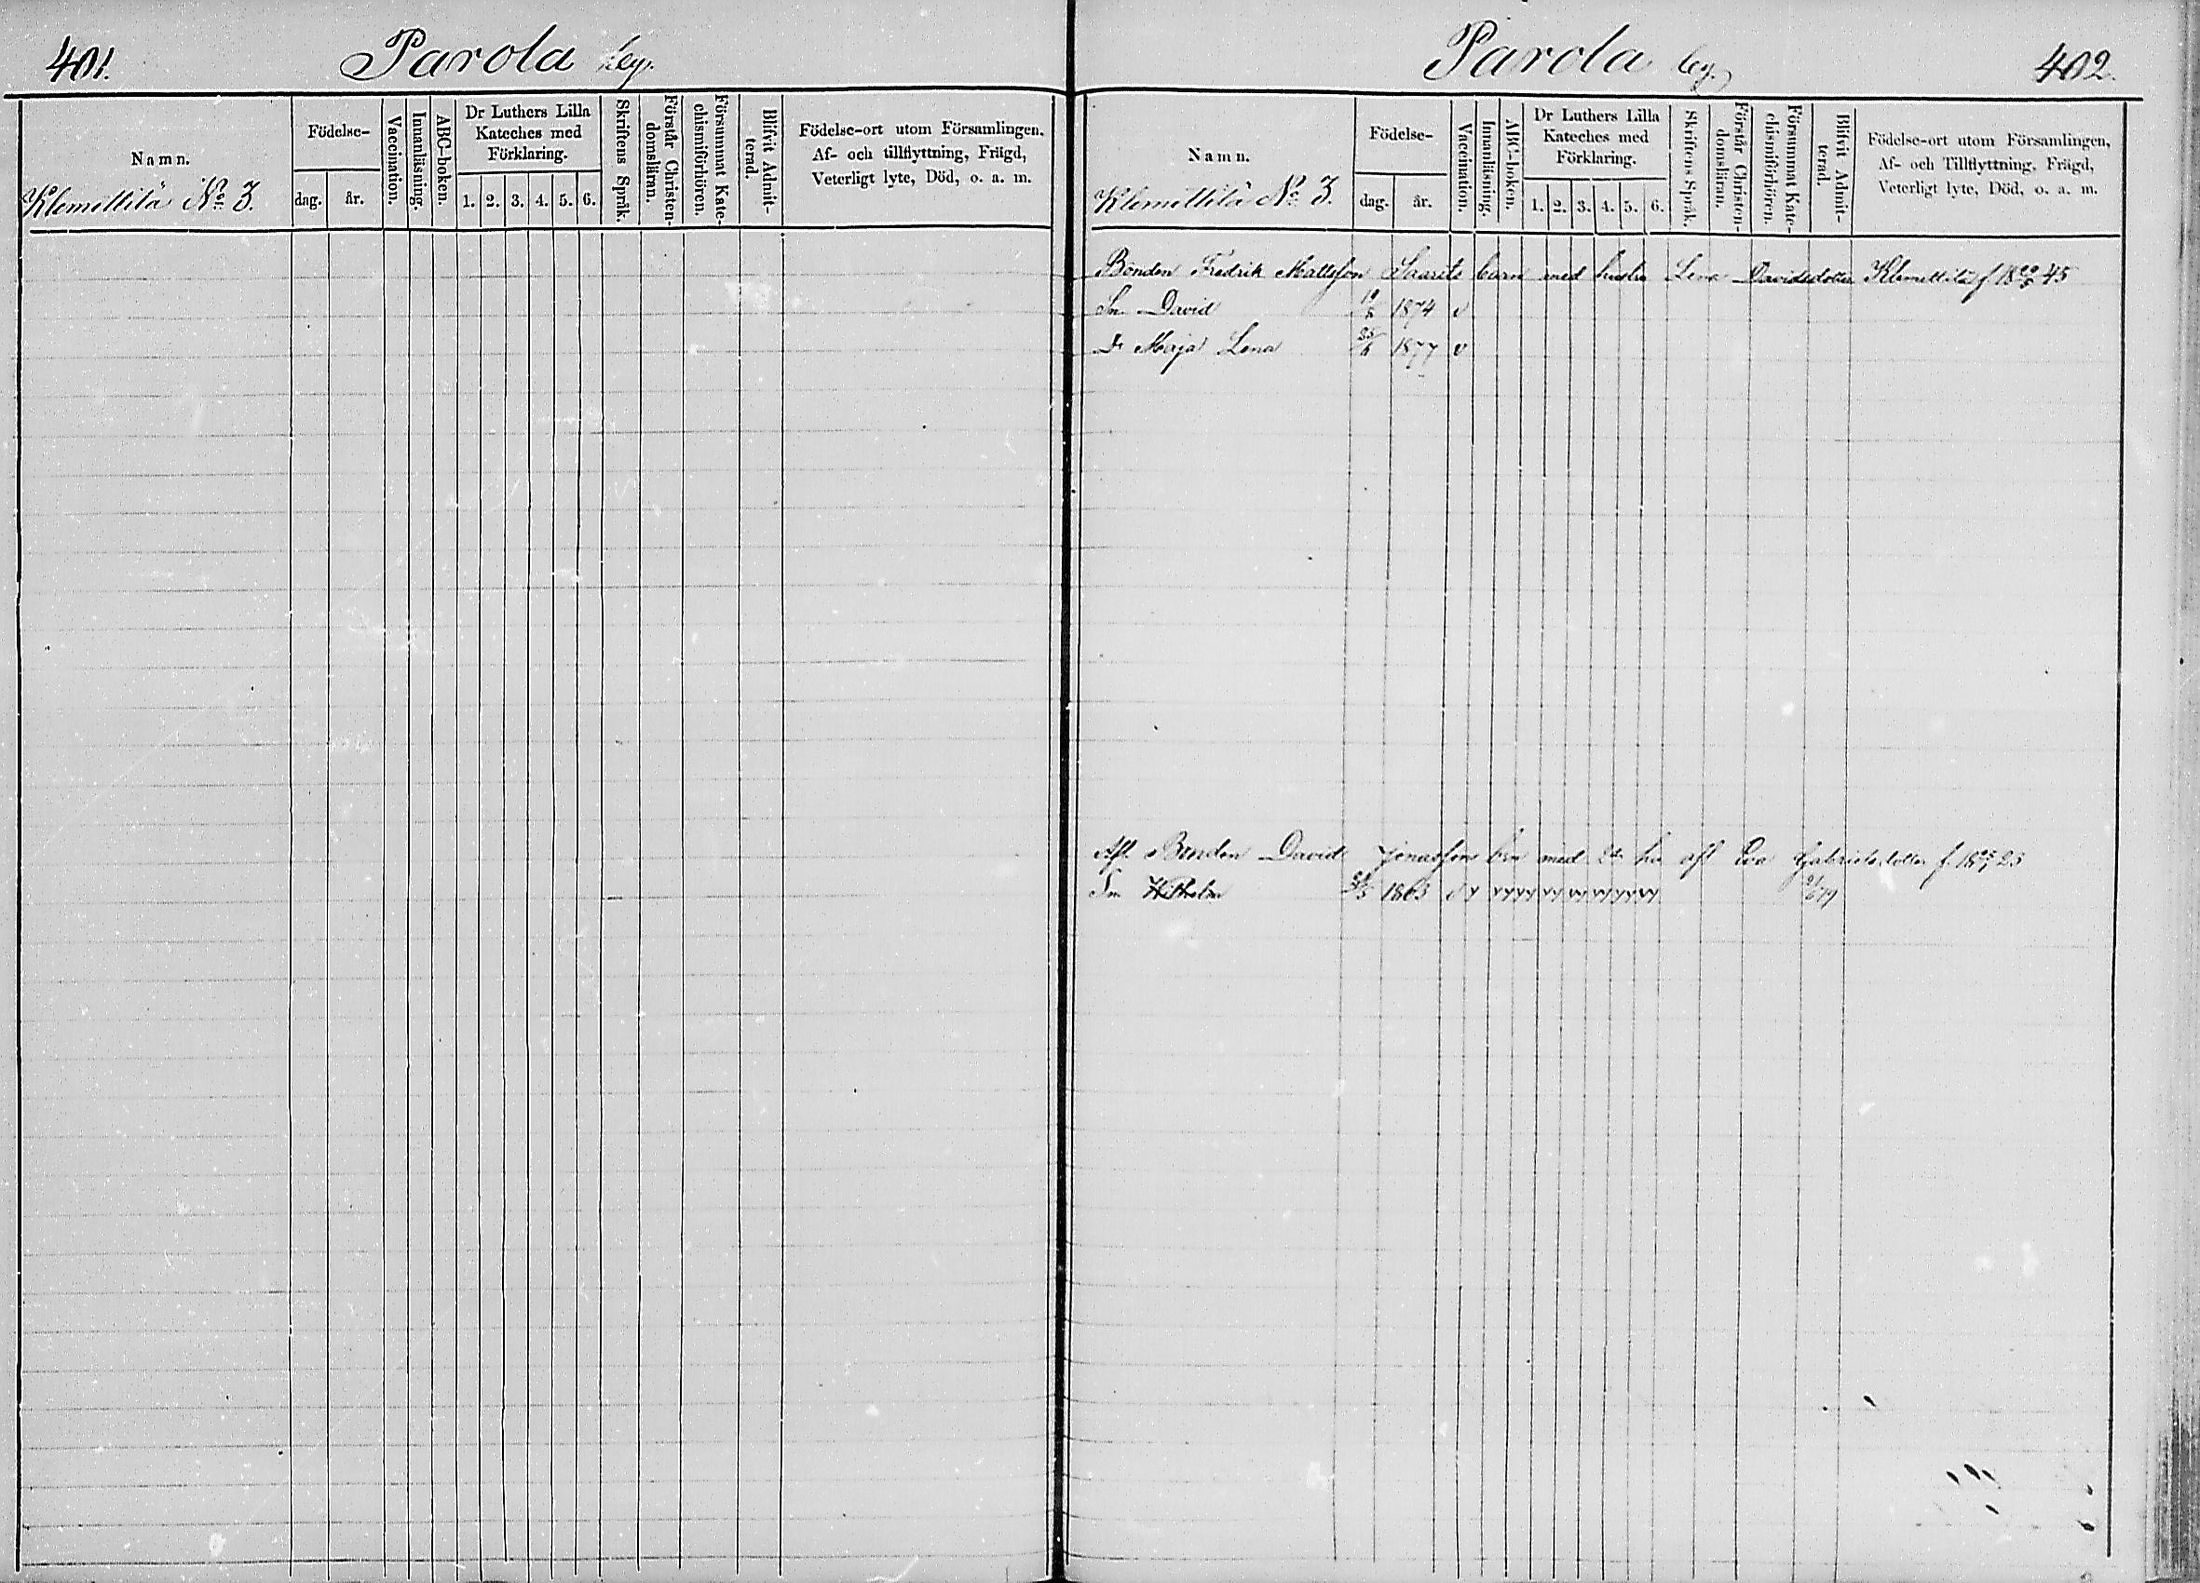 401.
Parola by.
Namn.
Klemettilä No 3.
Födelse-
dag. år.
Vaccination.
Innanläsning.
ABC-boken.
Dr Luthers Lilla
Kateches med
Förklaring.
1. 2. 3. 4. 5. 6.
Skriftens Språk.
Förstår Christen-
domsläran.
Försummat Kate-
chismiförhören.
Blifvit Admit-
terad.
Födelse-ort utom Församlingen,
Af- och tillflyttning, Frägd,
Veterligt lyte, Död, o. a. m.
Parola by.
402.
Namn.
Klemettilä No 3.
Födelse-
dag. år.
Vaccination.
Innanläsning.
ABC-boken.
Dr Luthers Lilla
Kateches med
Förklaring.
1. 2. 3. 4. 5. 6.
Skriftens Språk.
Förstår Christen-
domsläran.
Försummat Kate-
chismiförhören.
Blifvit Admit-
terad.
Födelse-ort utom Församlingen,
Af- och Tillflyttning, Frägd,
Veterligt lyte, Död, o. a. m.
Bonden Fredrik Mattsson Saaris barn med hustru Lena Davidsdotter Klemettilä f. 45
Sn David 1874 v
Dr Maja Lena 1877 v
Afl. Bonden David Jonassons brn med 2dra hu afl Eva Gabrielsdotter f. 23
Sn Wilhelm 1863 v